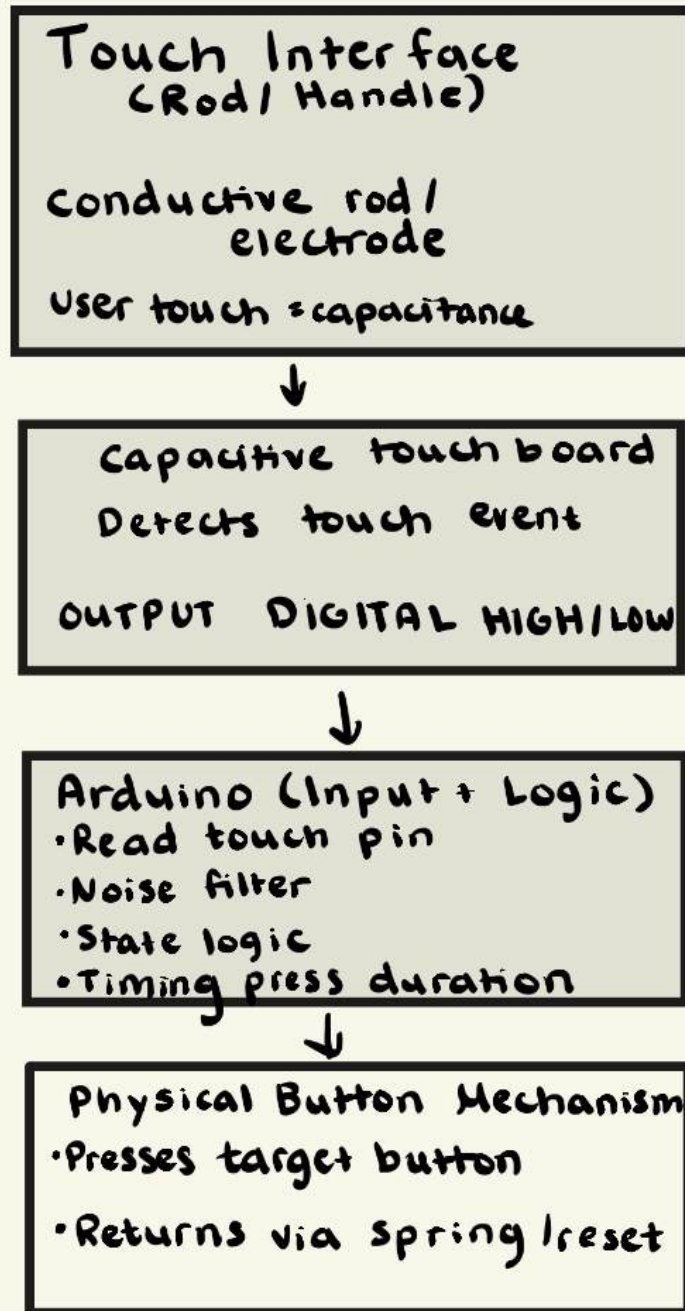 Touch Interface
(Rod / Handle)
conductive rod /
electrode
user touch = capacitance
Capacitive touch board
Detects touch event
OUTPUT DIGITAL HIGH/LOW
Arduino (Input + Logic)
•Read touch pin
•Noise filter
•State logic
•Timing press duration
Physical Button Mechanism
•Presses target button
•Returns via spring /reset